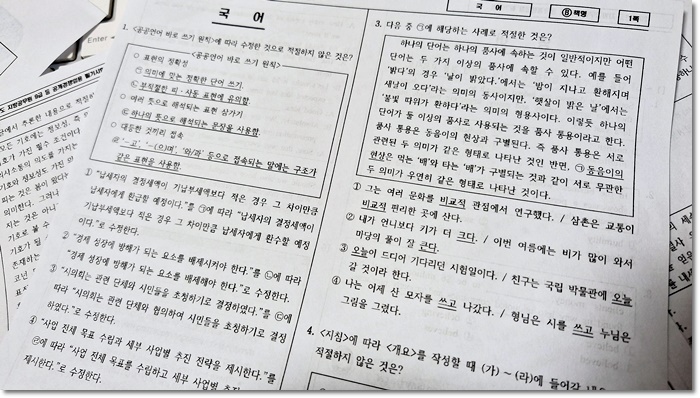 국 어
국 어
Ⓑ책형
1쪽
1. 다음 <공공언어 바로 쓰기 원칙>에 따라 수정한 것으로 적절하지 않은 것은?
<공공언어 바로 쓰기 원칙>
○ 표현의 정확성
㉠ 의미에 맞는 정확한 단어 쓰기.
㉡ 부적절한 피·사동 표현에 유의함.
○ 여러 뜻으로 해석되는 표현 삼가기
㉢ 하나의 뜻으로 해석되는 문장을 사용함.
○ 대등한 것끼리 접속
㉣ ‘-고’, ‘-(으)며’, ‘와/과’ 등으로 접속되는 말에는 구조가
같은 표현을 사용함.
① “납세자의 결정세액이 기납부세액보다 적은 경우 그 차이만큼
납세자에게 환급할 예정이다.”를 ㉠에 따라 “납세자의 결정세액이
기납부세액보다 적은 경우 그 차이만큼 납세자에게 환수할 예정
이다.”로 수정한다.
② “경제 성장에 방해가 되는 요소를 배제시켜야 한다.”를 ㉡에 따라
“경제 성장에 방해가 되는 요소를 배제해야 한다.”로 수정한다.
③ “시의회는 관련 단체와 시민들을 초청하기로 결정하였다.”를 ㉢에
따라 “시의회는 관련 단체와 협의하여 시민들을 초청하기로 결정
하였다.”로 수정한다.
④ “사업 전체 목표 수립과 세부 사업별 추진 전략을 제시한다.”를
㉣에 따라 “사업 전체 목표를 수립하고 세부 사업별 추진
제시한다.”로 수정한다.
3. 다음 중 ㉠에 해당하는 사례로 적절한 것은?
하나의 단어는 하나의 품사에 속하는 것이 일반적이지만 어떤
단어는 두 가지 이상의 품사에 속할 수 있다. 예를 들어
‘밝다’의 경우 ‘날이 밝았다.’에서는 ‘밤이 지나고 환해지며
새날이 오다’라는 의미의 동사이지만, ‘햇살이 밝은 날’에서는
‘불빛 따위가 환하다’라는 의미의 형용사이다. 이렇듯 하나의
단어가 둘 이상의 품사로 사용되는 것을 품사 통용이라고 한다.
품사 통용은 동음이의 현상과 구별된다. 즉 품사 통용은 서로
관련된 두 의미가 같은 형태로 나타난 것인 반면, ㉠ 동음이의
현상은 먹는 ‘배’와 타는 ‘배’가 구별되는 것과 같이 서로 무관한
두 의미가 우연히 같은 형태로 나타난 것이다.
① 그는 여러 문화를 비교적 관점에서 연구했다. / 삼촌은 교통이
비교적 편리한 곳에 산다.
② 내가 언니보다 키가 더 크다. / 이번 여름에는 비가 많이 와서
마당의 풀이 잘 큰다.
③ 오늘이 드디어 기다리던 시험일이다. / 친구는 국립 박물관에 오늘
갈 것이라 한다.
④ 나는 이제 산 모자를 쓰고 나갔다. / 형님은 시를 쓰고 누님은
그림을 그렸다.
4. <지침>에 따라 <개요>를 작성할 때 (가) ~ (라)에 들어갈
적절하지 않은 것은?
Enter